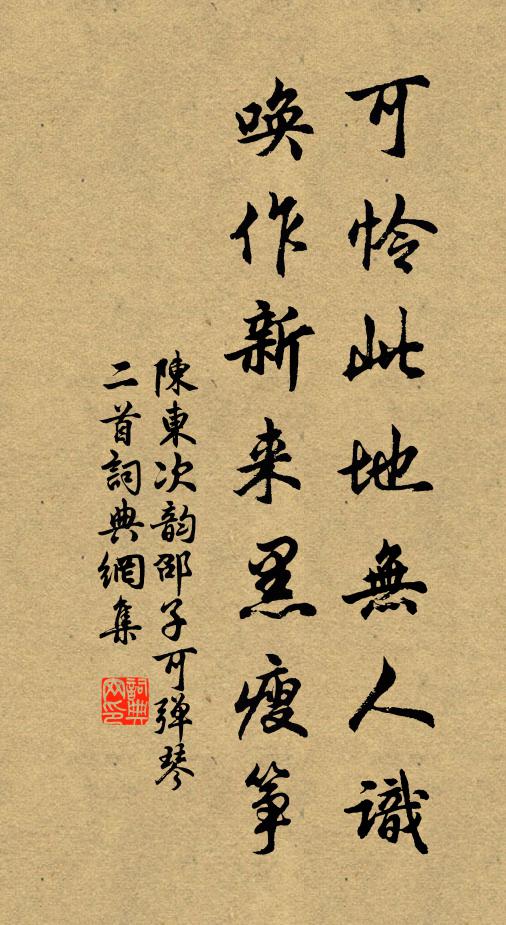 可怜此地無人識
唤作新来黑瘦筝
陳東次韵邵子可弹琴
二首詞典網集
詞典网印